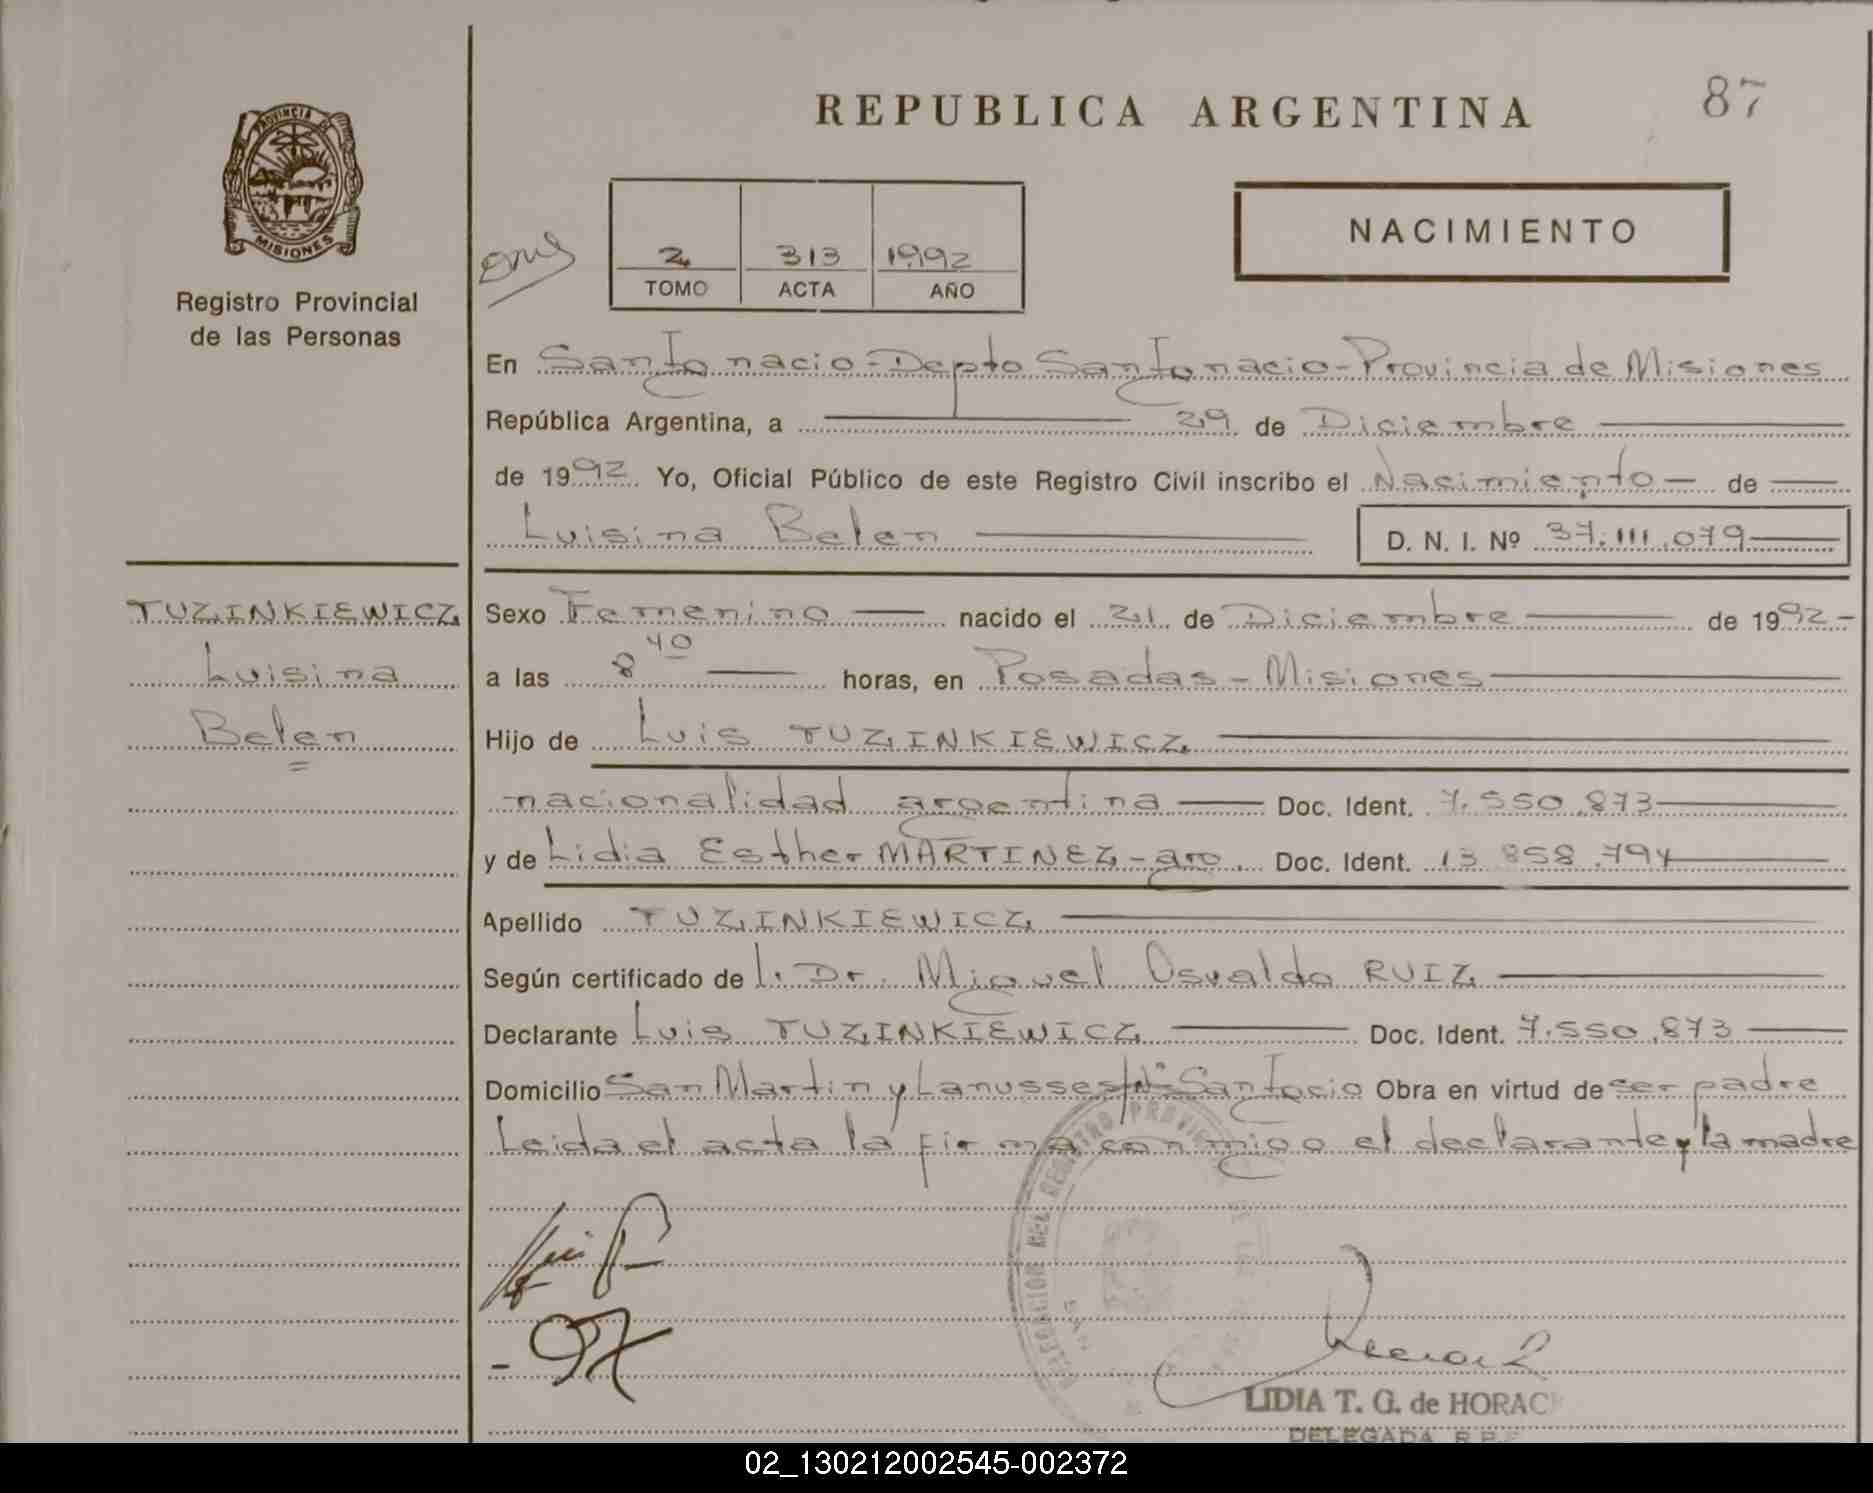 REPUBLICA ARGENTINA
87
PROVINCIA D
MISIONES
Registro Provincial
de las Personas
2 313 1992
TOMO ACTA AÑO
NACIMIENTO
En San Ignacio - Depto San Ignacio - Provincia de Misiones
República Argentina, a 29 de Diciembre
de 1992 Yo, Oficial Público de este Registro Civil inscribo el Nacimiento de
Luisina Belen D. N. I. Nº 37.111.079
TUZINKIEWICZ
Luisina
Belen
Sexo Femenino nacido el 21 de Diciembre de 1992
a las 8 40 horas, en Posadas - Misiones
Hijo de Luis TUZINKIEWICZ
nacionalidad argentina Doc. Ident. 7.550.873
y de Lidia Esther MARTINEZ - arg. Doc. Ident. 13.858.794
Apellido TUZINKIEWICZ
Según certificado de l. Dr. Miguel Osvaldo RUIZ
Declarante Luis TUZINKIEWICZ Doc. Ident. 7.550.873
Domicilio San Martin y Lanusse s/nº San Igcio Obra en virtud de ser padre
Leida el acta la firma conmigo el declarante y la madre
DELEGACION DEL REGISTRO PROVINCIAL DE LAS
LIDIA T. G. de HORAC
DELEGADA R.P.
02_130212002545-002372